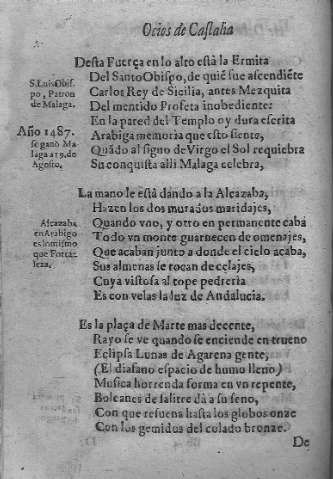 Ocios de Castalia
Desta Fuerça en lo alto està la Ermita
Del Santo Obispo, de quiẽ fue ascendiẽte
Carlos Rey de Sicilia, antes Mezquita
Del mentido Profeta inobediente:
En la pared del Templo oy dura escrita
Arabiga memoria que esto siente,
Quãdo al signo de Virgo el Sol requiebra
Su conquista alli Malaga celebra,
S. Luis Obis-
po, Patron
de Malaga.
Año 1487.
se ganò Ma
laga a 19. de
Agosto.
La mano le està dando a la Alcazaba,
Hazen los dos murados maridajes,
Quando vno, y otro en permanente caba
Todo vn monte guarnecen de omenajes,
Que acaban junto a donde el cielo acaba,
Sus almenas se tocan de celajes,
Cuya vistosa al tope pedreria
Es con velas la luz de Andalucia.
Alcazaba
en Arabigo
es lo mismo
que Forta-
leza.
Es la plaça de Marte mas decente,
Rayo se ve quando se enciende en trueno
Eclipsa Lunas de Agarena gente,
(El diafano espacio de humo lleno)
Musica horrenda forma en vn repente,
Bolcanes de salitre dà a su seno,
Con que resuena hasta los globos onze
Con los gemidos del colado bronze.
De